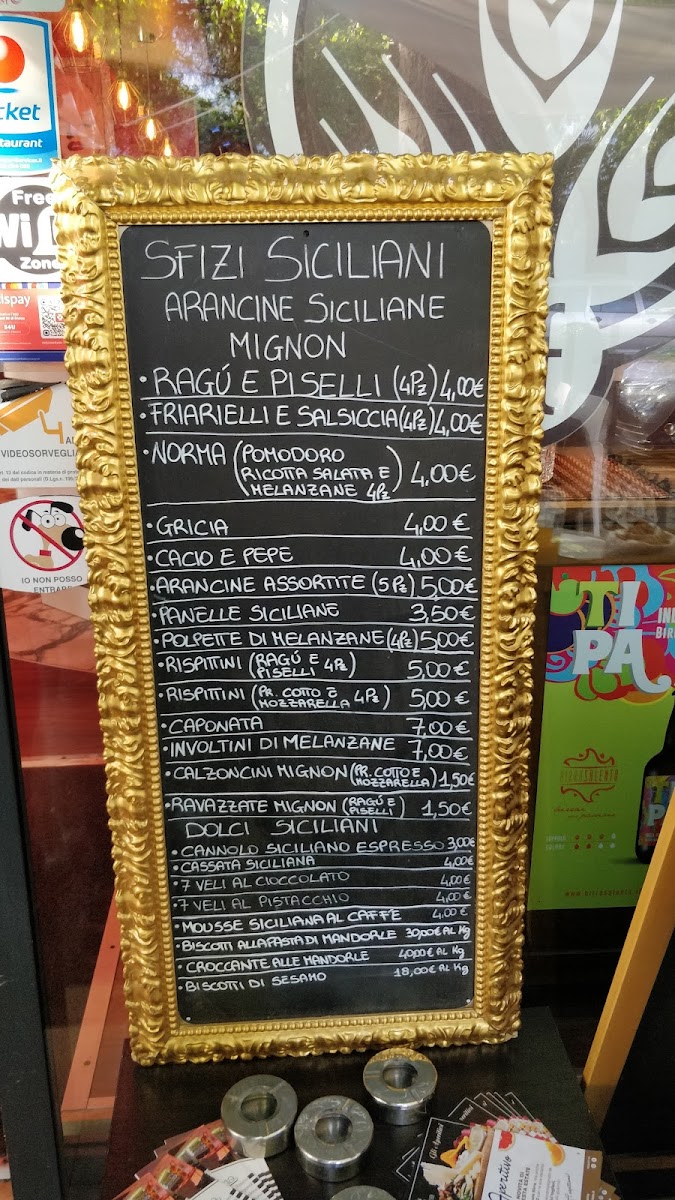 cket
staurant
Free
Wi
Zone
tispay
SFIZI SICILIANI
ARANCINE SICILIANE
MIGNON
• RAGÚ E PISELLI (4Pz) 4,00€
• FRIARIELLI E SALSICCIA (4Pz) 4,00€
• NORMA (POMODORO RICOTTA SALATA E MELANZANE 4Pz) 4,00€
• GRICIA 4,00€
• CACIO E PEPE 4,00€
• ARANCINE ASSORTITE (5Pz) 5,00€
• PANELLE SICILIANE 3,50€
• POLPETTE DI MELANZANE (4Pz) 5,00€
• RISPITTINI (RAGÚ E PISELLI 4Pz) 5,00€
• RISPITTINI (PR. COTTO E MOZZARELLA 4Pz) 5,00€
• CAPONATA 7,00€
• INVOLTINI DI MELANZANE 7,00€
• CALZONCINI MIGNON (PR. COTTO E MOZZARELLA) 1,50€
• RAVAZZATE MIGNON (RAGÚ E PISELLI) 1,50€
DOLCI SICILIANI
• CANNOLO SICILIANO ESPRESSO 3,00€
• CASSATA SICILIANA 4,00€
• 7 VELI AL CIOCCOLATO 4,00€
• 7 VELI AL PISTACCHIO 4,00€
• MOUSSE SICILIANA AL CAFFÈ 4,00€
• BISCOTTI ALLA PASTA DI MANDORLE 30,00€ AL Kg
• CROCCANTE ALLE MANDORLE 40,00€ AL Kg
• BISCOTTI DI SESAMO 18,00€ AL Kg
VIDEOSORVEGLI
IO NON POSSO
ENTRARE
TI
PA
IN
BIR
BIRRASALENTO
Aperitivo